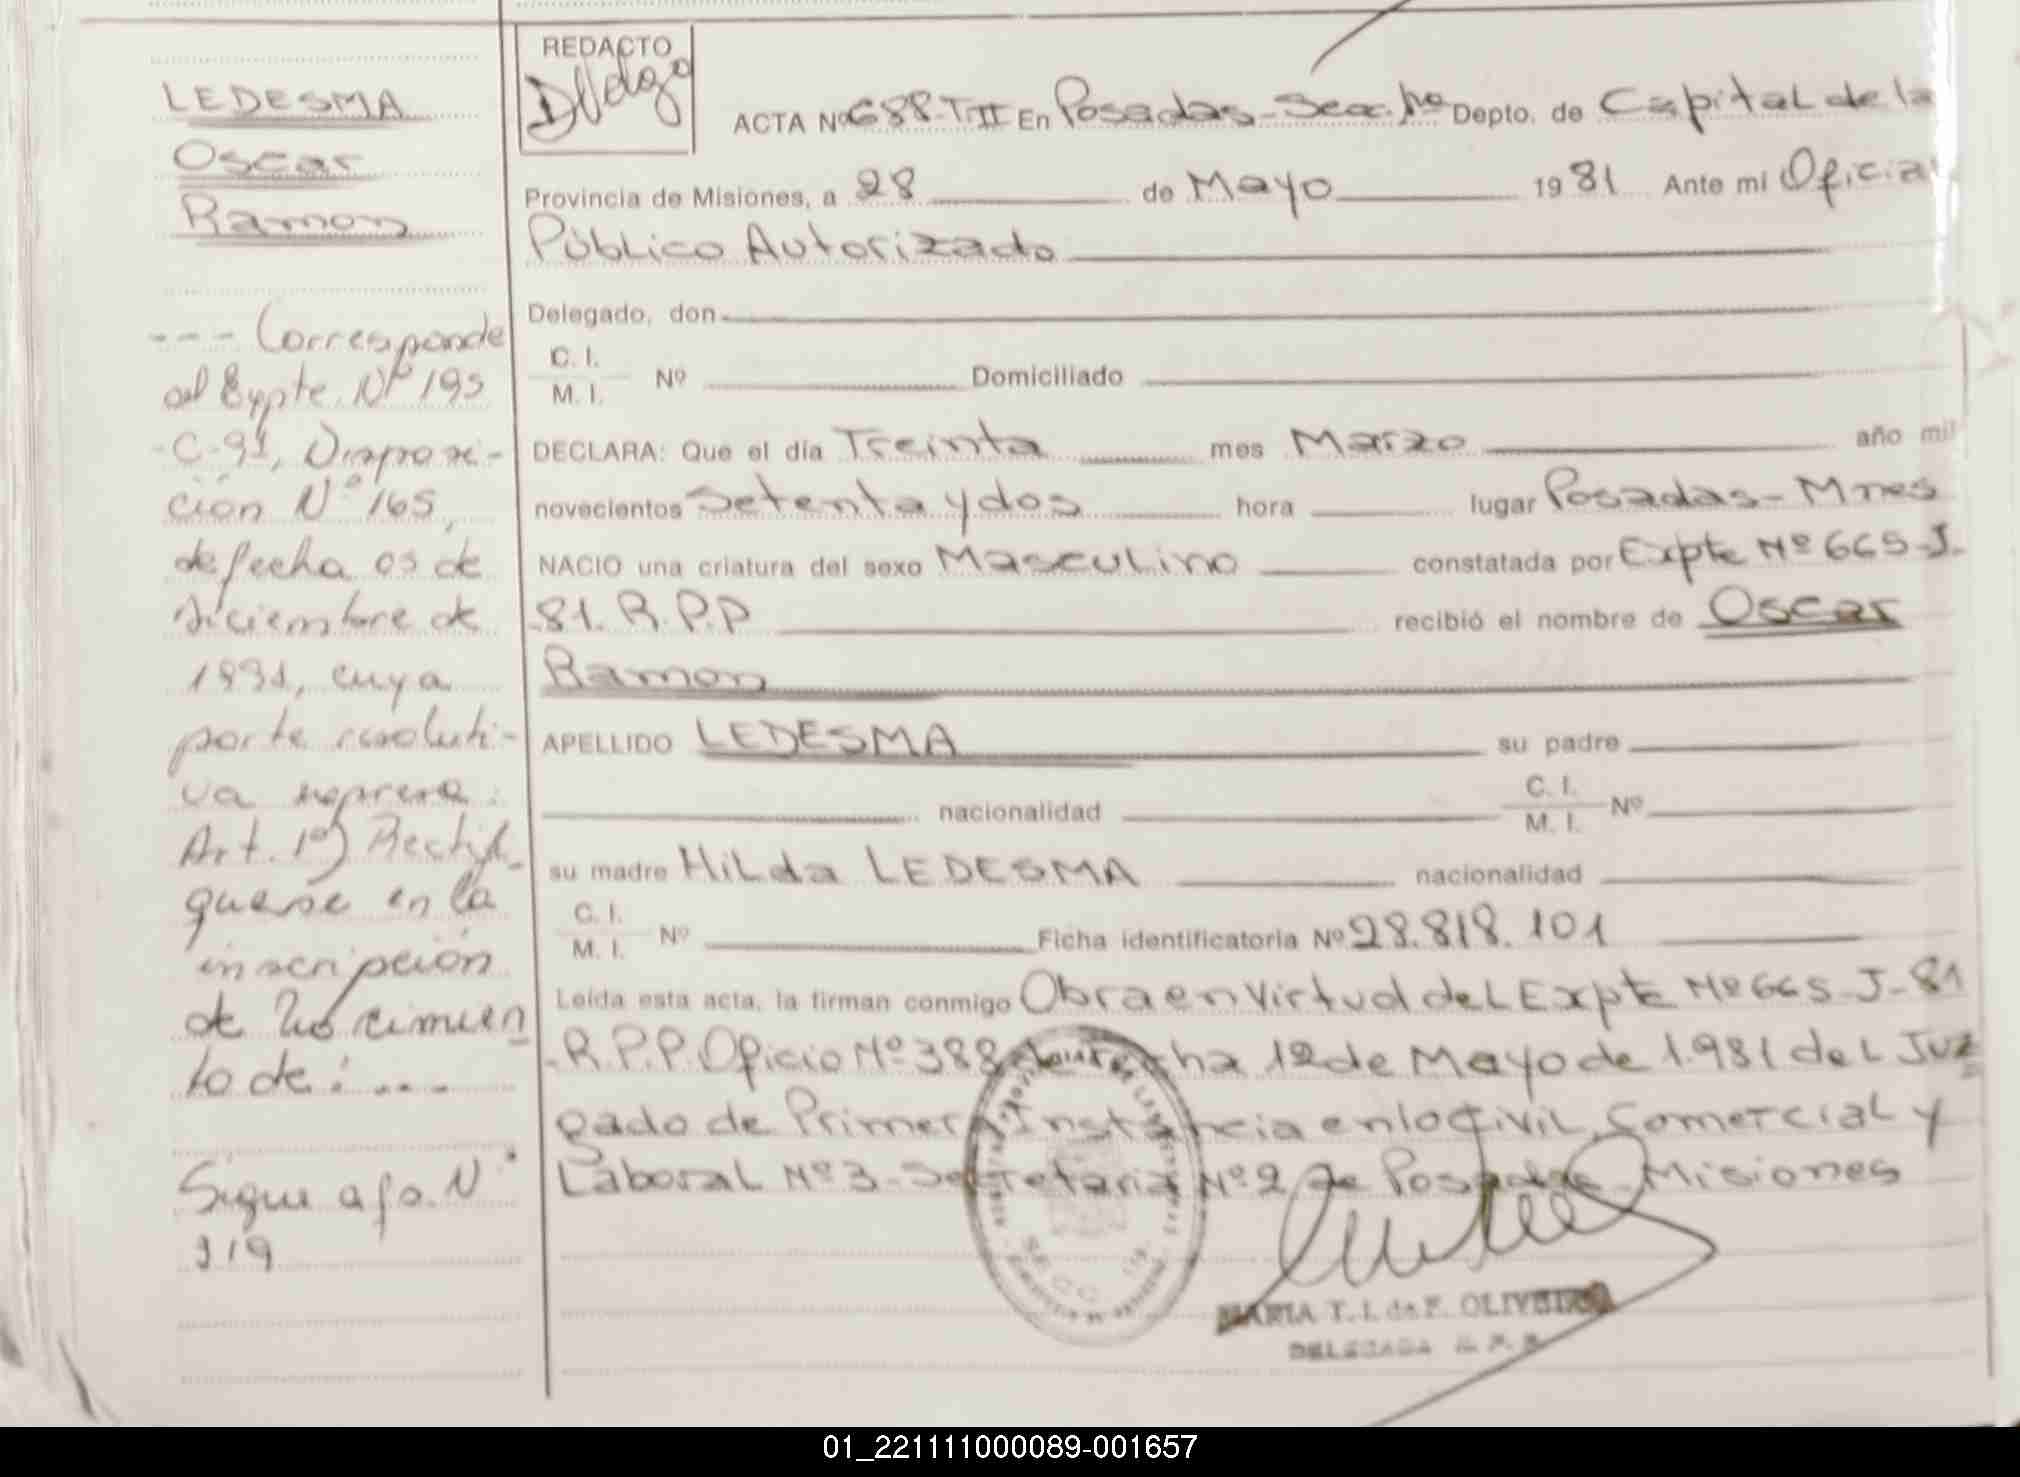 LEDESMA
Oscar
Ramon
--- Corresponde
al Expte. Nº 195
-C-91, Disposi-
ción Nº 165,
de fecha 05 de
diciembre de
1991, cuya
parte resoluti-
va expresa:
Art. 1º) Rectifí-
quese en la
inscripción
de nacimien
to de: ...
Sigue a fo. Nº
119
REDACTO
ACTA Nº 688-T-II En Posadas-Secc. 1º Depto. de Capital de la
Provincia de Misiones, a 28 de Mayo 1981 Ante mi Oficial
Público Autorizado
Delegado, don
C. I.
M. I. Nº Domiciliado
DECLARA: Que el día Treinta mes Marzo año mil
novecientos Setenta y dos hora lugar Posadas-Mnes
NACIO una criatura del sexo Masculino constatada por Expte Nº 665-J-
81. R.P.P recibió el nombre de Oscar
Ramon
APELLIDO LEDESMA su padre
nacionalidad C. I.
M. I. Nº
su madre Hilda LEDESMA nacionalidad
C. I.
M. I. Nº Ficha identificatoria Nº 28.818.101
Leída esta acta, la firman conmigo Obra en Virtud del Expte Nº 665-J-81
-R.P.P. Oficio Nº 388 de fecha 12 de Mayo de 1.981 del Juz
gado de Primera Instancia en lo Civil, Comercial y
Laboral Nº 3-Secretaria Nº 2 de Posadas-Misiones
MARIA T. I. de F. OLIVEIRA
DELEGADA R. P. P.
01_221111000089-001657